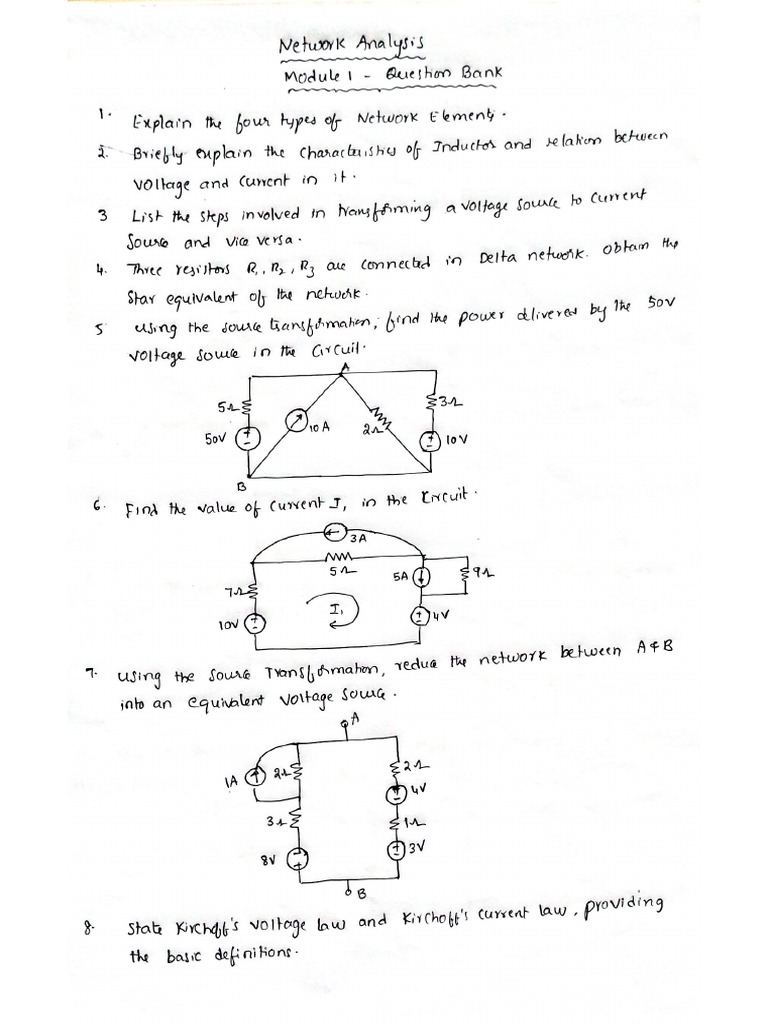 Network Analysis
Module 1 - Question Bank
1. Explain the four types of Network Elements.
2. Briefly explain the characteristics of Inductor and relation between
voltage and current in it.
3 List the steps involved in transforming a voltage source to current
source and vice versa.
4. Three resistors R1, R2, R3 are connected in Delta network. Obtain the
star equivalent of the network.
5 using the source transformation, find the power delivered by the 50V
voltage source in the circuit.
A
5Ω
3Ω
10A
2Ω
50V
10V
B
6. Find the value of current I, in the circuit.
3A
5Ω
5A
9Ω
7Ω
I1
10V
4V
7. Using the source Transformation, reduce the network between A & B
into an equivalent voltage source.
A
1A
2Ω
2Ω
4V
3Ω
1Ω
8V
3V
B
8. State Kirchoff's voltage law and Kirchoff's current law, providing
the basic definitions.